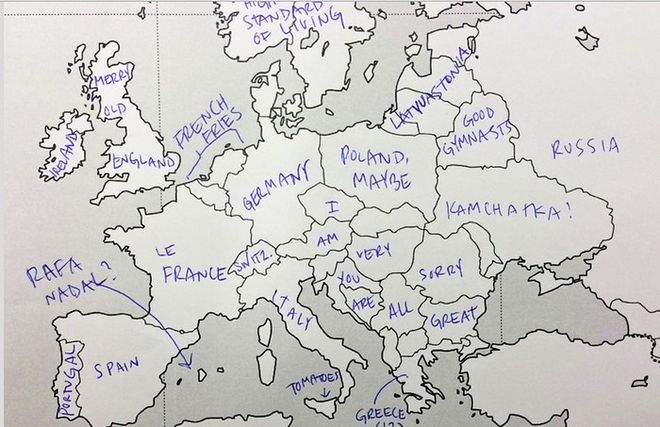 HIGH
STANDARD
OF LIVING
MERRY
OLD
ENGLAND
IRELAND
FRENCH
FRIES
LATVIASTONIA
GOOD
GYMNASTS
RUSSIA
GERMANY
POLAND,
MAYBE
KAMCHATKA!
I
AM
VERY
SORRY
YOU
ARE
ALL
GREAT
LE
FRANCE
SWITZ.
ITALY
RAFA
NADAL?
SPAIN
PORTUGAL
TOMATOES
GREECE